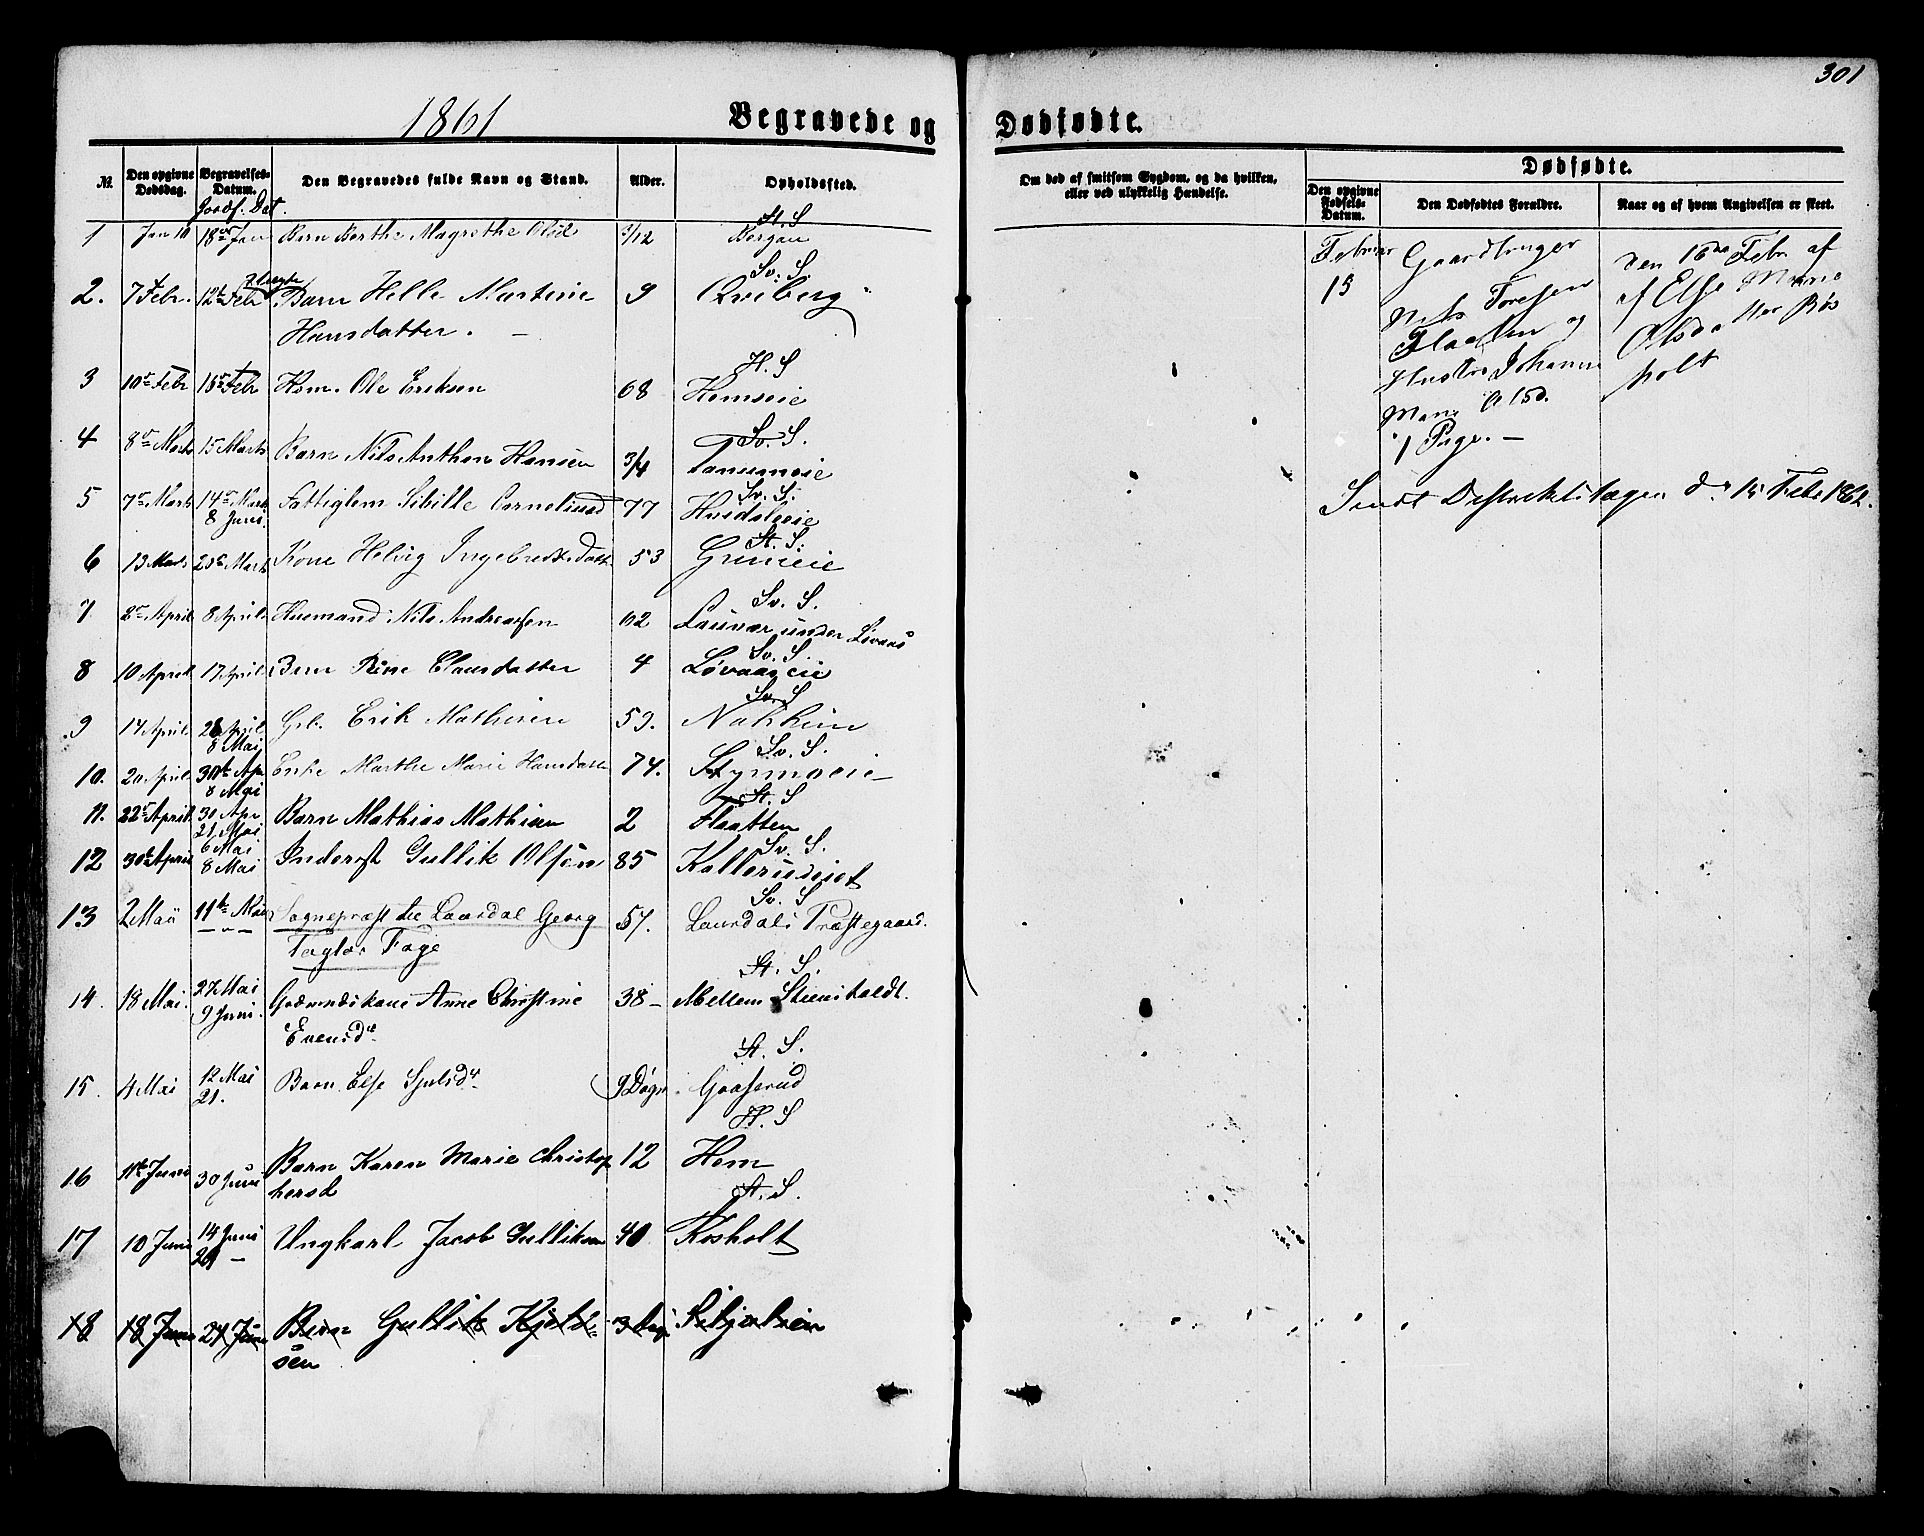 301
1861 Begravede og Dødfødte.
Dødfødte.
No. Den opgivne Dødsdag. Begravelses-Datum. Den Begravedes fulde Navn og Stand. Alder. Opholdssted. Om død af smitsom Sygdom, og da hvilken, eller ved ulykkelig Hændelse. Den opgivne Fødsels-Datum. Den Dødfødtes Forældre. Naar og af hvem Angivelsen er skeet.
Jordf. Dat.
St. S
1 Jan 10 18de Jan Barn Berthe Magrethe Olsd 3/12 Bergan
Sv. S.
2. 7 Febr. 12te Febr Barn Helle Martine 9 Qviberg
Hansdatter.
H. S
3 10de Febr 18de Febr Hsm. Ole Eriksen 68 Hemseie
Sv. S.
4 8de Marts 15 Marts Barn Nils Anthon Hansen 3/4 Tanumeie
Sv. S.
5 7de Marts 14de Marts Fattiglem Sibille Corneliusd 77 Hvidsteeie
8 Juni.
St. S.
6 13 Marts 20de Marts Kone Helvig Ingebretsdatt 53 Grueeie
Sv. S.
7. 2de April 8 April Husmand Nils Andreassen 62 Lauvar under Løvaas
Sv. S
8 10 April 17 April Barn Rine Clausdatter 4 Løvaaseie
Sv. S
9 14 April 28 April Grb. Erik Mathisen 59. Nakkim
8 Mai
Sv. S.
10. 20 April 30te Apr Enke Marthe Marie Hansdatt 74. Styrmoeie
8 Mai
St. S
11. 22de April 30 Apr Barn Mathias Mathisen 2 Flaatten
21 Mai
Sv. S.
12 30te April 6 Mai Inderst Gullik Olsen 85 Kallerudeiet
8 Mai
Sv. S
13 2 Mai 11te Mai Sognepræst til Laurdal Georg 57. Laurdals Præstegaard.
Taylor Faye
St. S.
14. 18 Mai. 27 Mai Gaardmandskone Anne Christine 38 Mellem Steensholdt.
9 Juni. Evensdr
St. S.
15. 4 Mai 12 Mai Barn Else Sjulsdr 9 Døgn Gaaserud
21.
H. S
16 11te Juni 30 Juni Barn Karen Marie Christop 12 Hem
hersd
St. S.
17 10 Juni 14 Juni Ungkarl Jacob Gulliksen 40 Røsholt
21
18 18 Juni 21 Juni Barn Gullik Kjeld 3 Dag
sen
Februar
15
Gaardbruger
Nils Toresen
Flaatten og
Hustru Johanne
Marie Olsd.
1 Pige.
Den 16de Febr. af
af Else Marie
Olsdatter Røs
holt
Sendt Distriktslægen d. 15 Febr 1862.